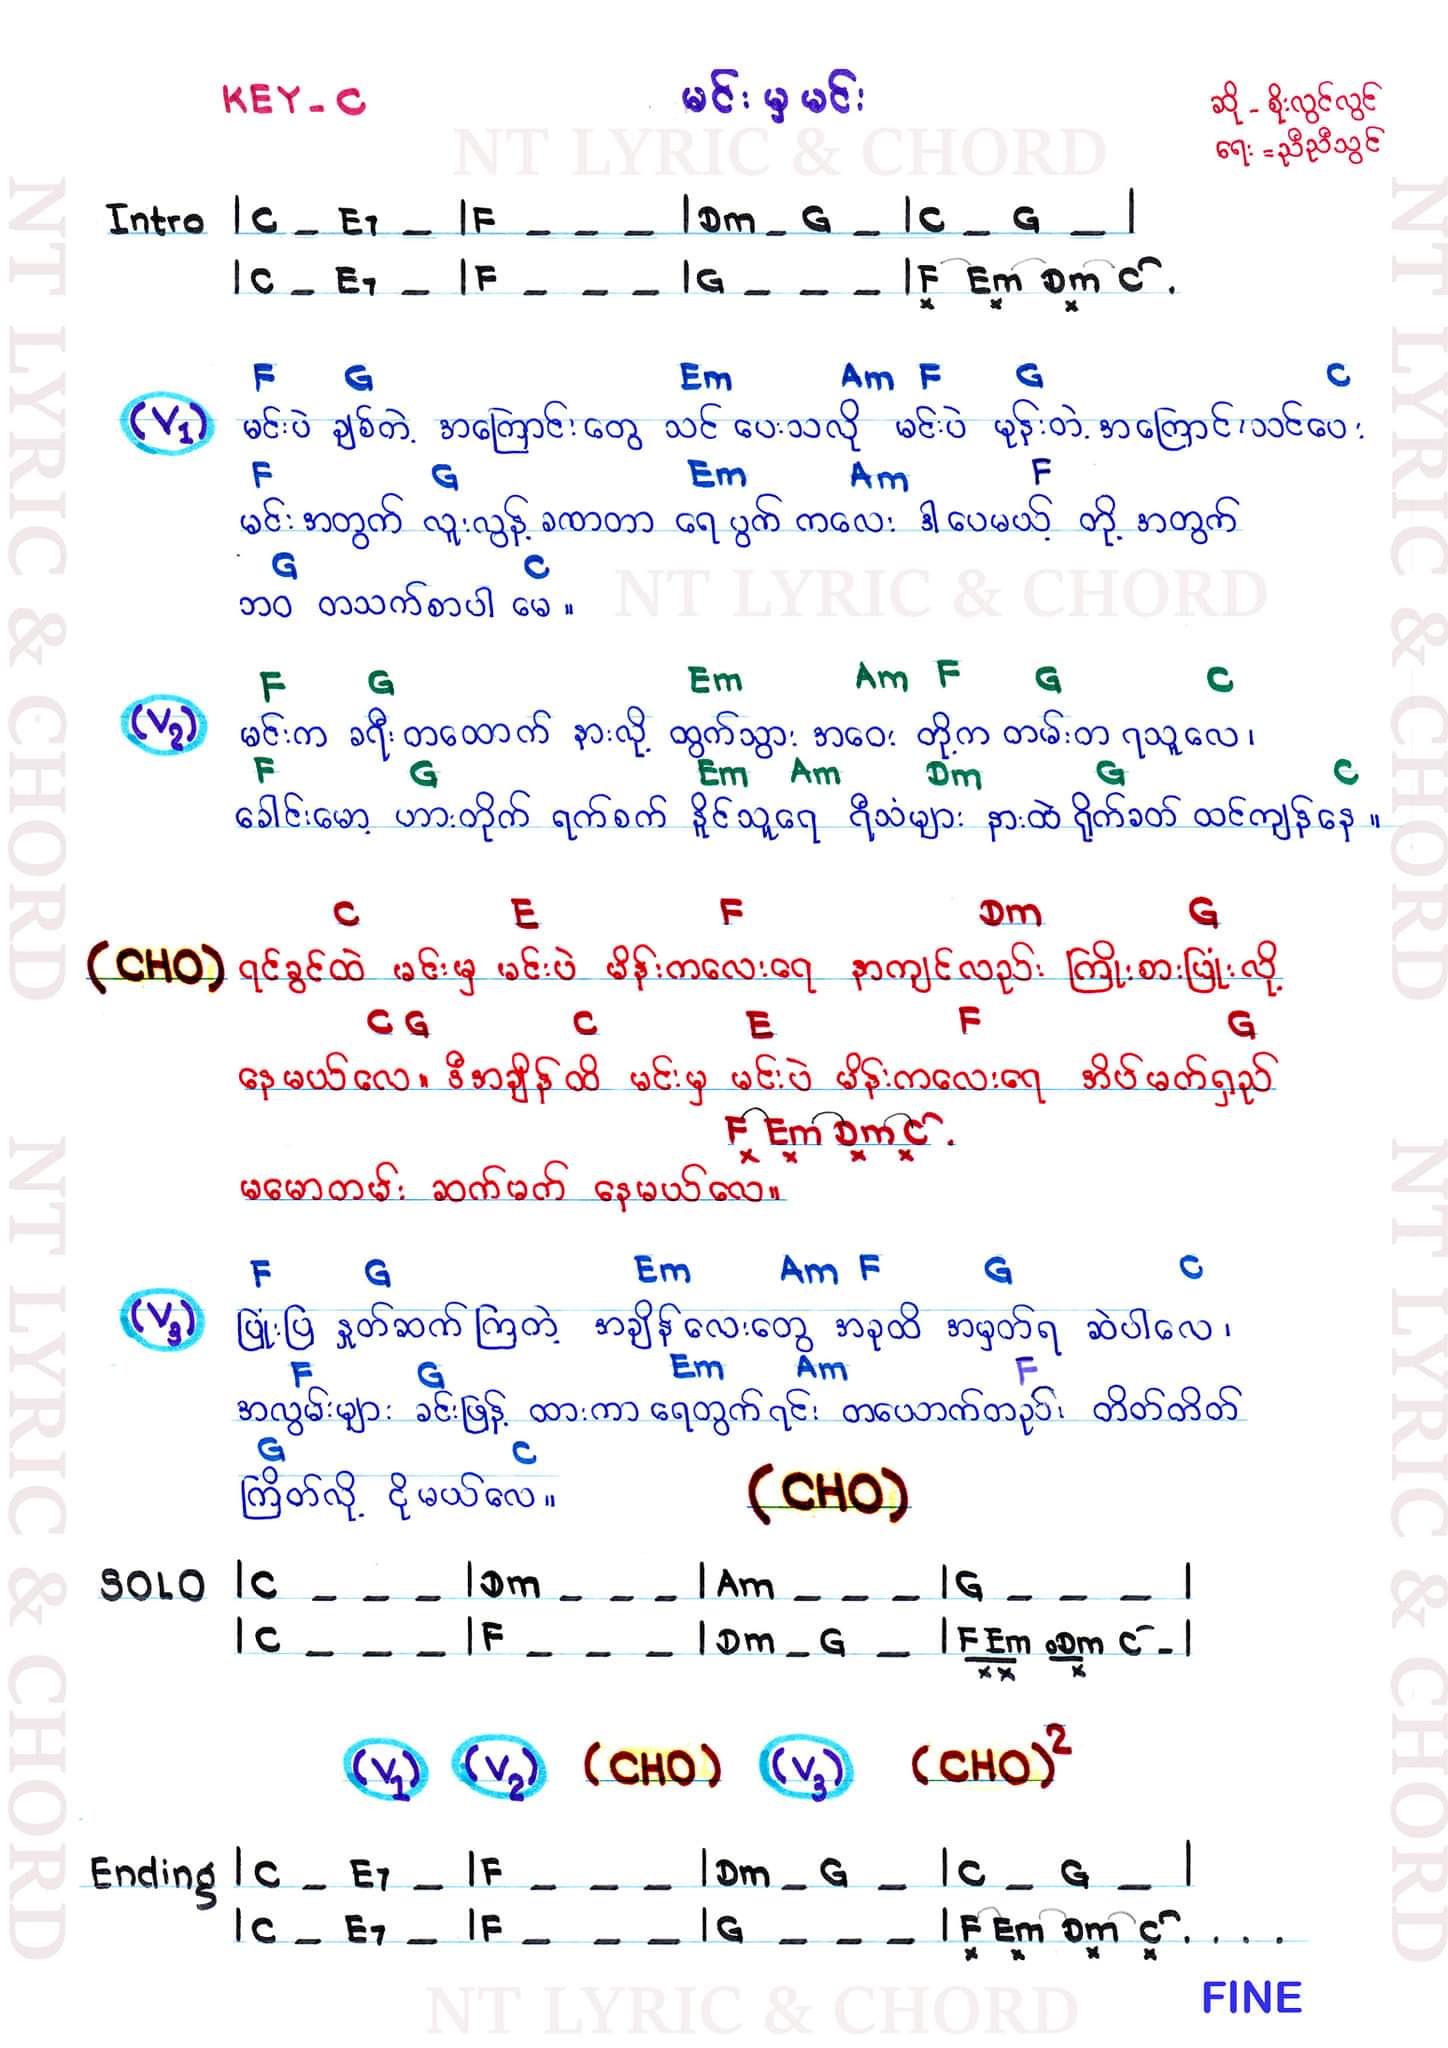 KEY - C
မင်းမှမင်း
ဆို - စိုးလွင်လွင်
ရေး = ညီညီသွင်
NT LYRIC & CHORD
Intro |C _ E7 _ |F _ _ _ |Dm _ G _ |C _ G _ |
|C _ E7 _ |F _ _ _ |G _ _ _ |F Em Dm C .
x x x
F G Em Am F G C
(V1) မင်းပဲ ချစ်တဲ့ အကြောင်းတွေ သင် ပေးသလို မင်းပဲ မုန်းတဲ့ အကြောင်းသင်ပေး
F G Em Am F
မင်းအတွက် လူးလွန့် ခဏတာ ရေပွက် ကလေး ဒါပေမယ့် တို့ အတွက်
G C
ဘဝ တသက်စာပါ မေ ။
NT LYRIC & CHORD
F G Em Am F G C
(V2) မင်းက ခရီးတထောက် နားလို့ ထွက်သွား အဝေး တို့က တမ်းတ ရသူလေ ၊
F G Em Am Dm G C
ခေါင်းမော့ ဟားတိုက် ရက်စက် နိုင်သူရေ ရီသံများ နားထဲ ရိုက်ခတ် ထင်ကျန်နေ ။
C E F Dm G
(CHO) ရင်ခွင်ထဲ မင်းမှ မင်းပဲ မိန်းကလေးရေ နာကျင်လည်း ကြိုးစားပြုံးလို့
C G C E F G
နေမယ်လေ ။ ဒီအချိန်ထိ မင်းမှ မင်းပဲ မိန်းကလေးရေ အိပ်မတ်ရှည်
F Em Dm C .
x x x x
မမောတမ်း ဆက်မက် နေမယ်လေ ။
F G Em Am F G C
(V3) ပြုံးပြ နှုတ်ဆက်ကြတဲ့ အချိန်လေးတွေ အခုထိ အမှတ်ရ ဆဲပါလေ ၊
F G Em Am F
အလွမ်းများ ခင်းဖြန့် ထားကာ ရေတွက်ရင်း တယောက်တည်း တိတ်တိတ်
G C
ကြိတ်လို့ ငိုမယ်လေ ။ (CHO)
SOLO |C _ _ _ |Dm _ _ _ |Am _ _ _ |G _ _ _ |
|C _ _ _ |F _ _ _ |Dm _ G _ |F Em Dm C _ |
x x x
(V1) (V2) (CHO) (V3) (CHO)2
Ending |C _ E7 _ |F _ _ _ |Dm _ G _ |C _ G _ |
|C _ E7 _ |F _ _ _ |G _ _ _ |F Em Dm C . . . .
x x x x
FINE
NT LYRIC & CHORD
NT LYRIC & CHORD
NT LYRIC & CHORD
NT LYRIC & CHORD
NT LYRIC & CHORD